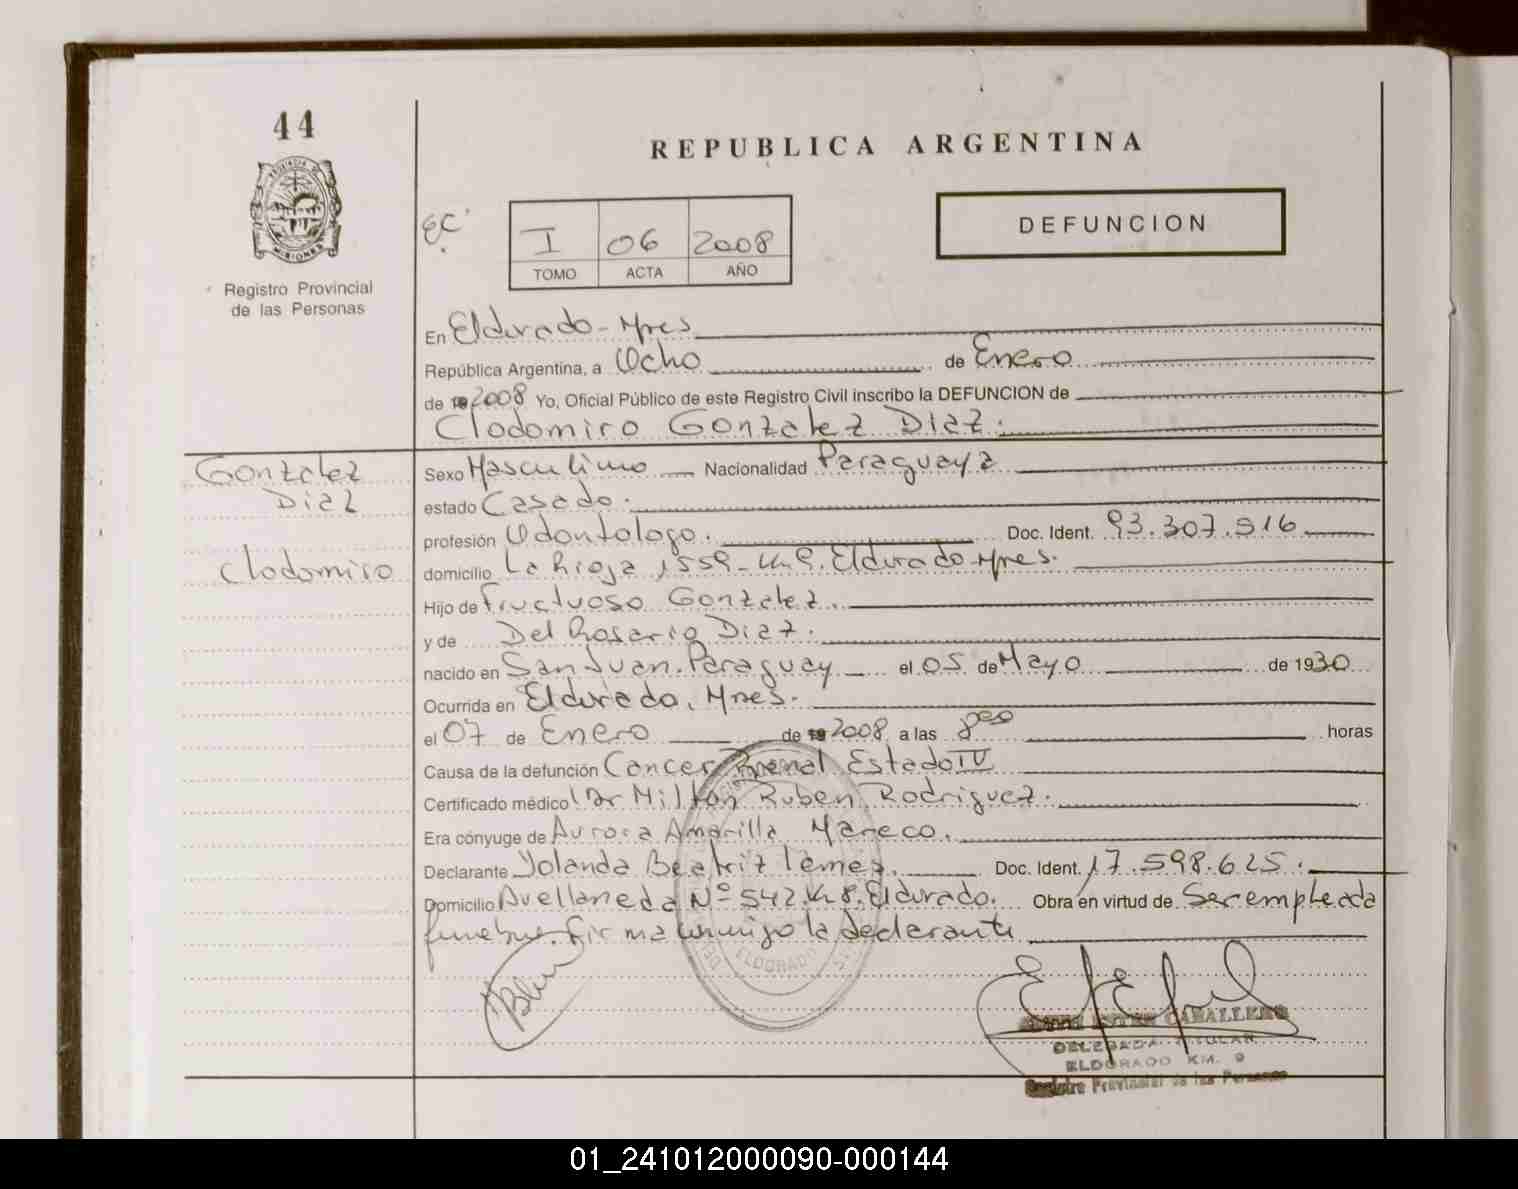 44
REPUBLICA ARGENTINA
DEFUNCION
I 06 2008
TOMO ACTA AÑO
Registro Provincial
de las Personas
En Eldorado - Mnes
República Argentina, a Ocho de Enero
de 2008 Yo, Oficial Público de este Registro Civil inscribo la DEFUNCION de
Clodomiro Gonzalez Diaz.
Gonzalez
Diaz
Clodomiro
Sexo Masculino Nacionalidad Paraguaya
estado Casado.
profesión Odontologo. Doc. Ident. 93.307.516
domicilio La Rioja 1559 - Km 9. Eldorado - Mnes.
Hijo de Fructuoso Gonzalez.
y de Del Rosario Diaz.
nacido en San Juan. Paraguay el 05 de Mayo de 1930
Ocurrida en Eldorado, Mnes.
el 07 de Enero de 2008 a las 8 horas
Causa de la defunción Cancer Renal Estado IV
Certificado médico Dr Milton Ruben Rodriguez.
Era cónyuge de Aurora Amarilla Mareco.
Declarante Yolanda Beatriz Doc. Ident. 17.598.625.
Domicilio Avellaneda Nº 542. Km 8. Eldorado. Obra en virtud de Ser empleada
funebre. Firma conmigo la declarante
ELDORADO
CABALLERO
DELEGADA TITULAR
ELDORADO KM. 9
Registro Provincial de las Personas
01_241012000090-000144